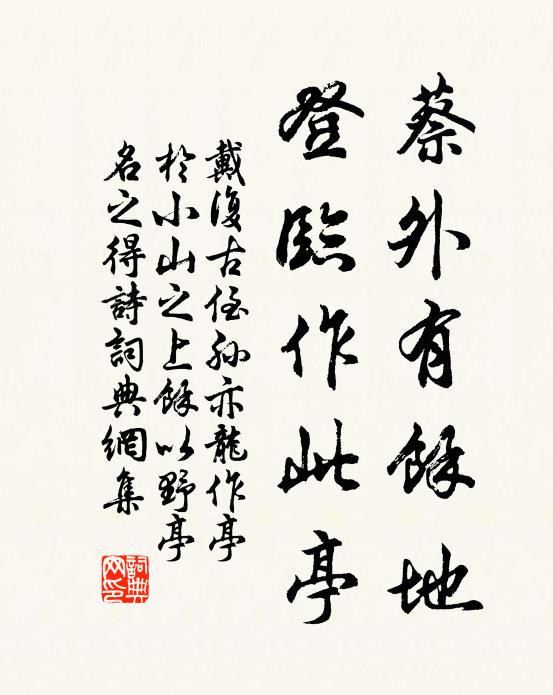 蔡外有餘地
登臨作此亭
戴復古侄孙亦龍作亭
於小山之上餘以野亭
名之得詩詞典網集
詞典网印